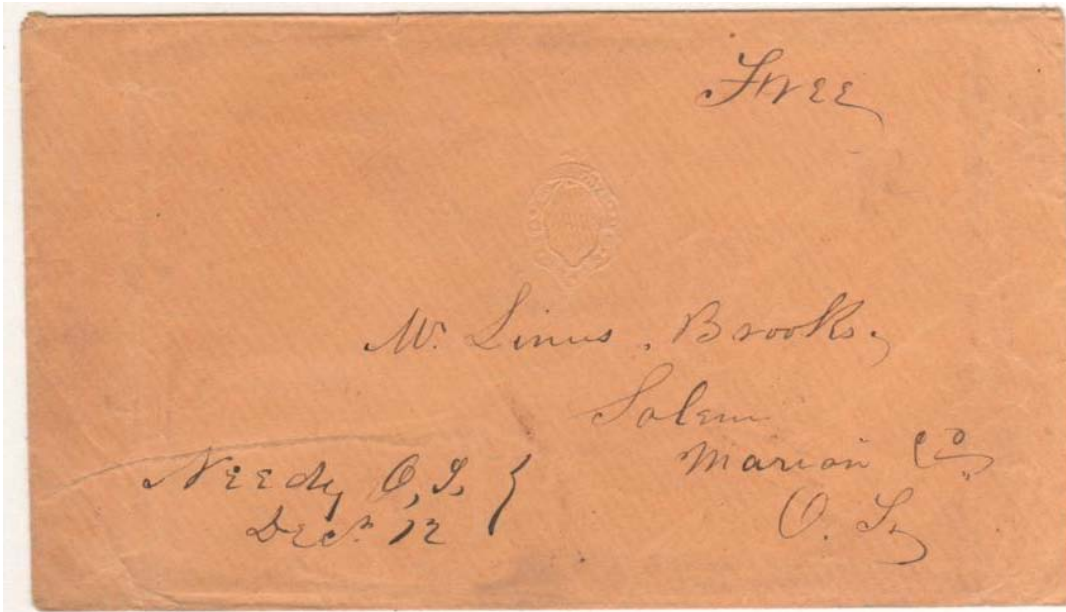 Free
Mr. Linus, Brooks,
Salem
Marion Co,,
O. T,
Needy O, T, {
Dec. 12